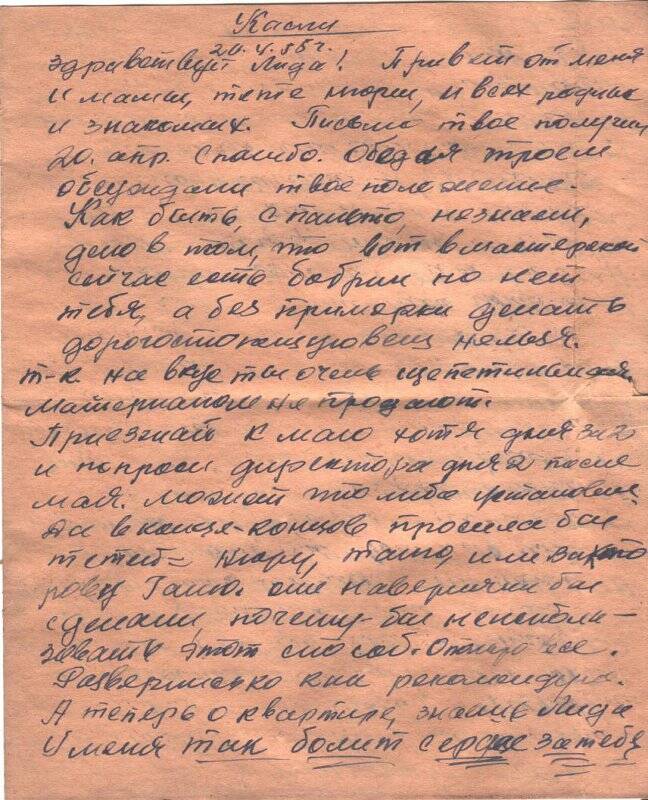 Касли
20.4.55г.
Здравствуй Лида! Привет от меня
и мамы, тети Нюры, и всех родных
и знакомых. Письмо твое получил
20. апр. Спасибо. Обедая троем
обсуждали твое положение.
Как быть, с пальто, незнаем,
дело в том, что вот в мастерской
сейчас есть бобрик но нет
тебя, а без примерки сделать
дорогостоющую вещ нельзя.
т-к. на вкус ты очень щепетильная.
Материалом не продают.
Приезжай к маю хотя дня за 2
и попроси директора дня 2 после
мая. может что либо установим.
Да в конце-концов просила бы
тетю Нюру, Таню, или
Ганю. они наверняка бы
сделали, почему-бы неисполь-
зовать этот способ.
А теперь о квартире, знаешь Лида
У меня так болит сердце за тебя